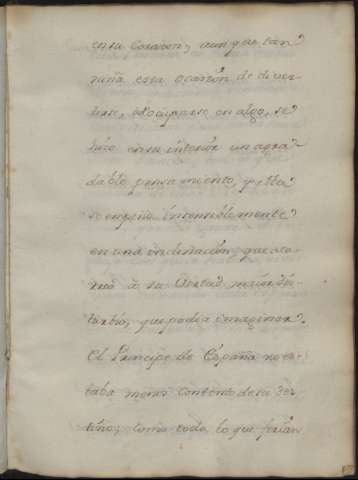 en su Corazon; aunque tan
niña esta ocasion de diver-
tirse, ò ocuparse en algo, se
hizo en su interior un agra-
dable pensamiento, y ella
se empeño insensiblemente
en una inclinacion, que
à su Virtud mayor dis-
turbio, que podia imaginar.
El Principe de España no es-
taba menos contento de su des-
tino; como todo lo que